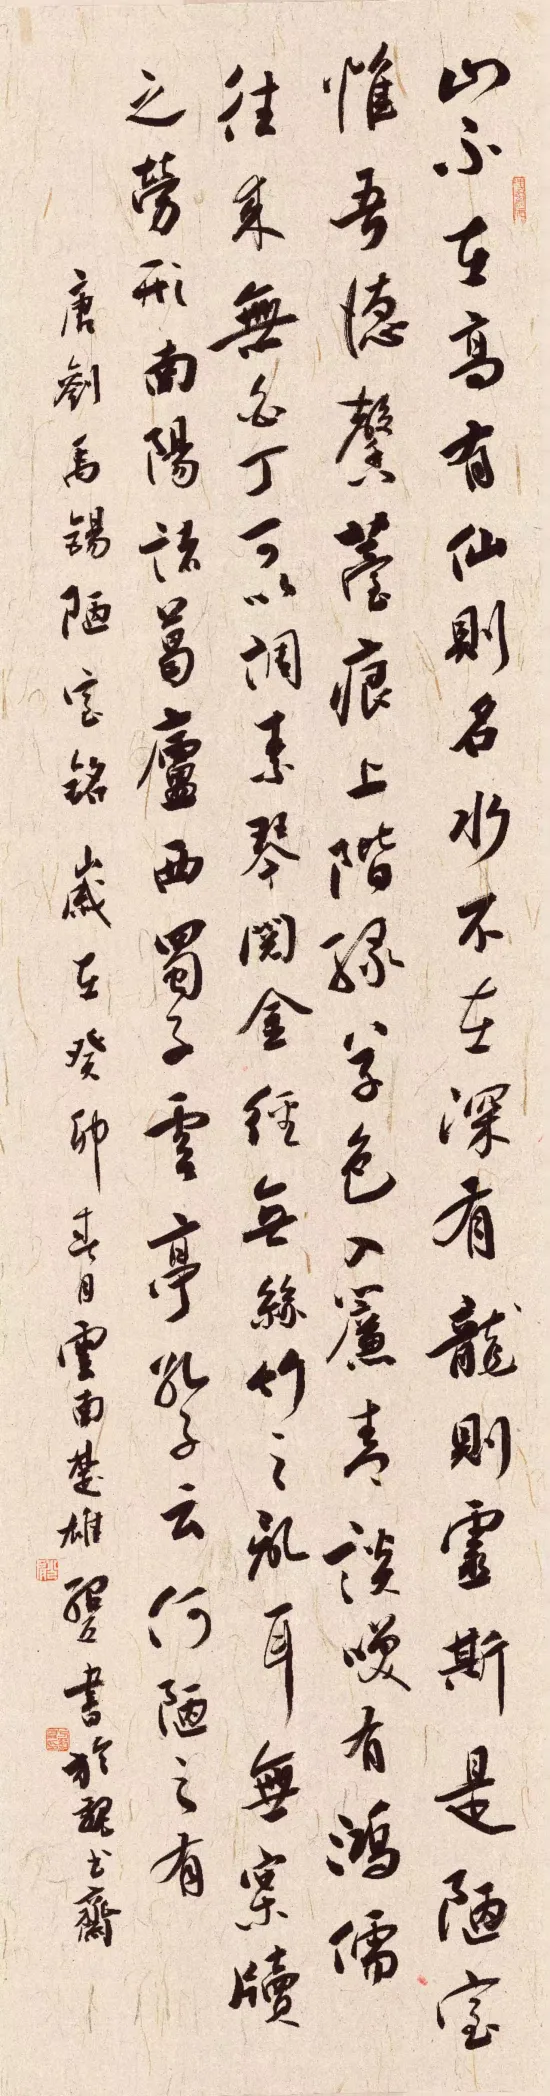 山不在高有仙則名水不在深有龍則靈斯是陋室
惟吾德馨薹痕上階緑草色入簾青談笑有鴻儒
往來無白丁可以調素琴閱金經無絲竹之亂耳無案牘
之勞形南陽諸葛廬西蜀子雲亭孔子云何陋之有
唐劉禹錫陋室銘 歲在癸卯春月雲南楚雄 書於 齋